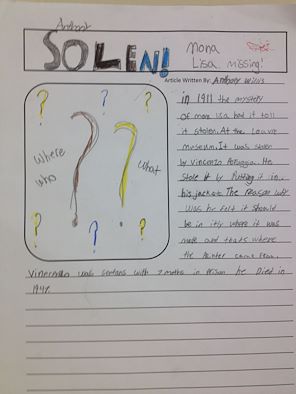 Almost
SOLEN!
Mona
Lisa missing!
Article Written By: Anthony Willis
?
?
?
? ?
Where
Who
What
?
?
?
in 1911 the mystery
of mona lisa had it toll
it stolen. At the Louvre
museum. It was stolen
by Vincenzo Peruggia. He
stole it by Putting it in
his jacket. The reason why
was he felt it should
be in itly where it was
made and thats where
the Painter came from.
was sentans with 7 moths in Prison he Died in
1947.